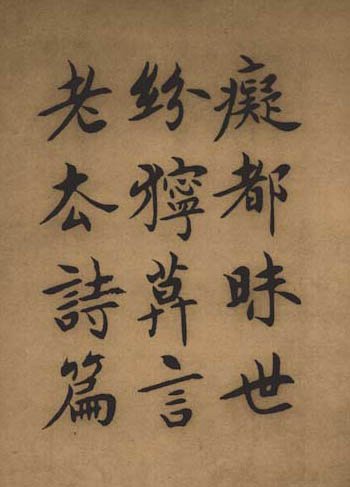 癡都昧世
紛獰言
老詩篇